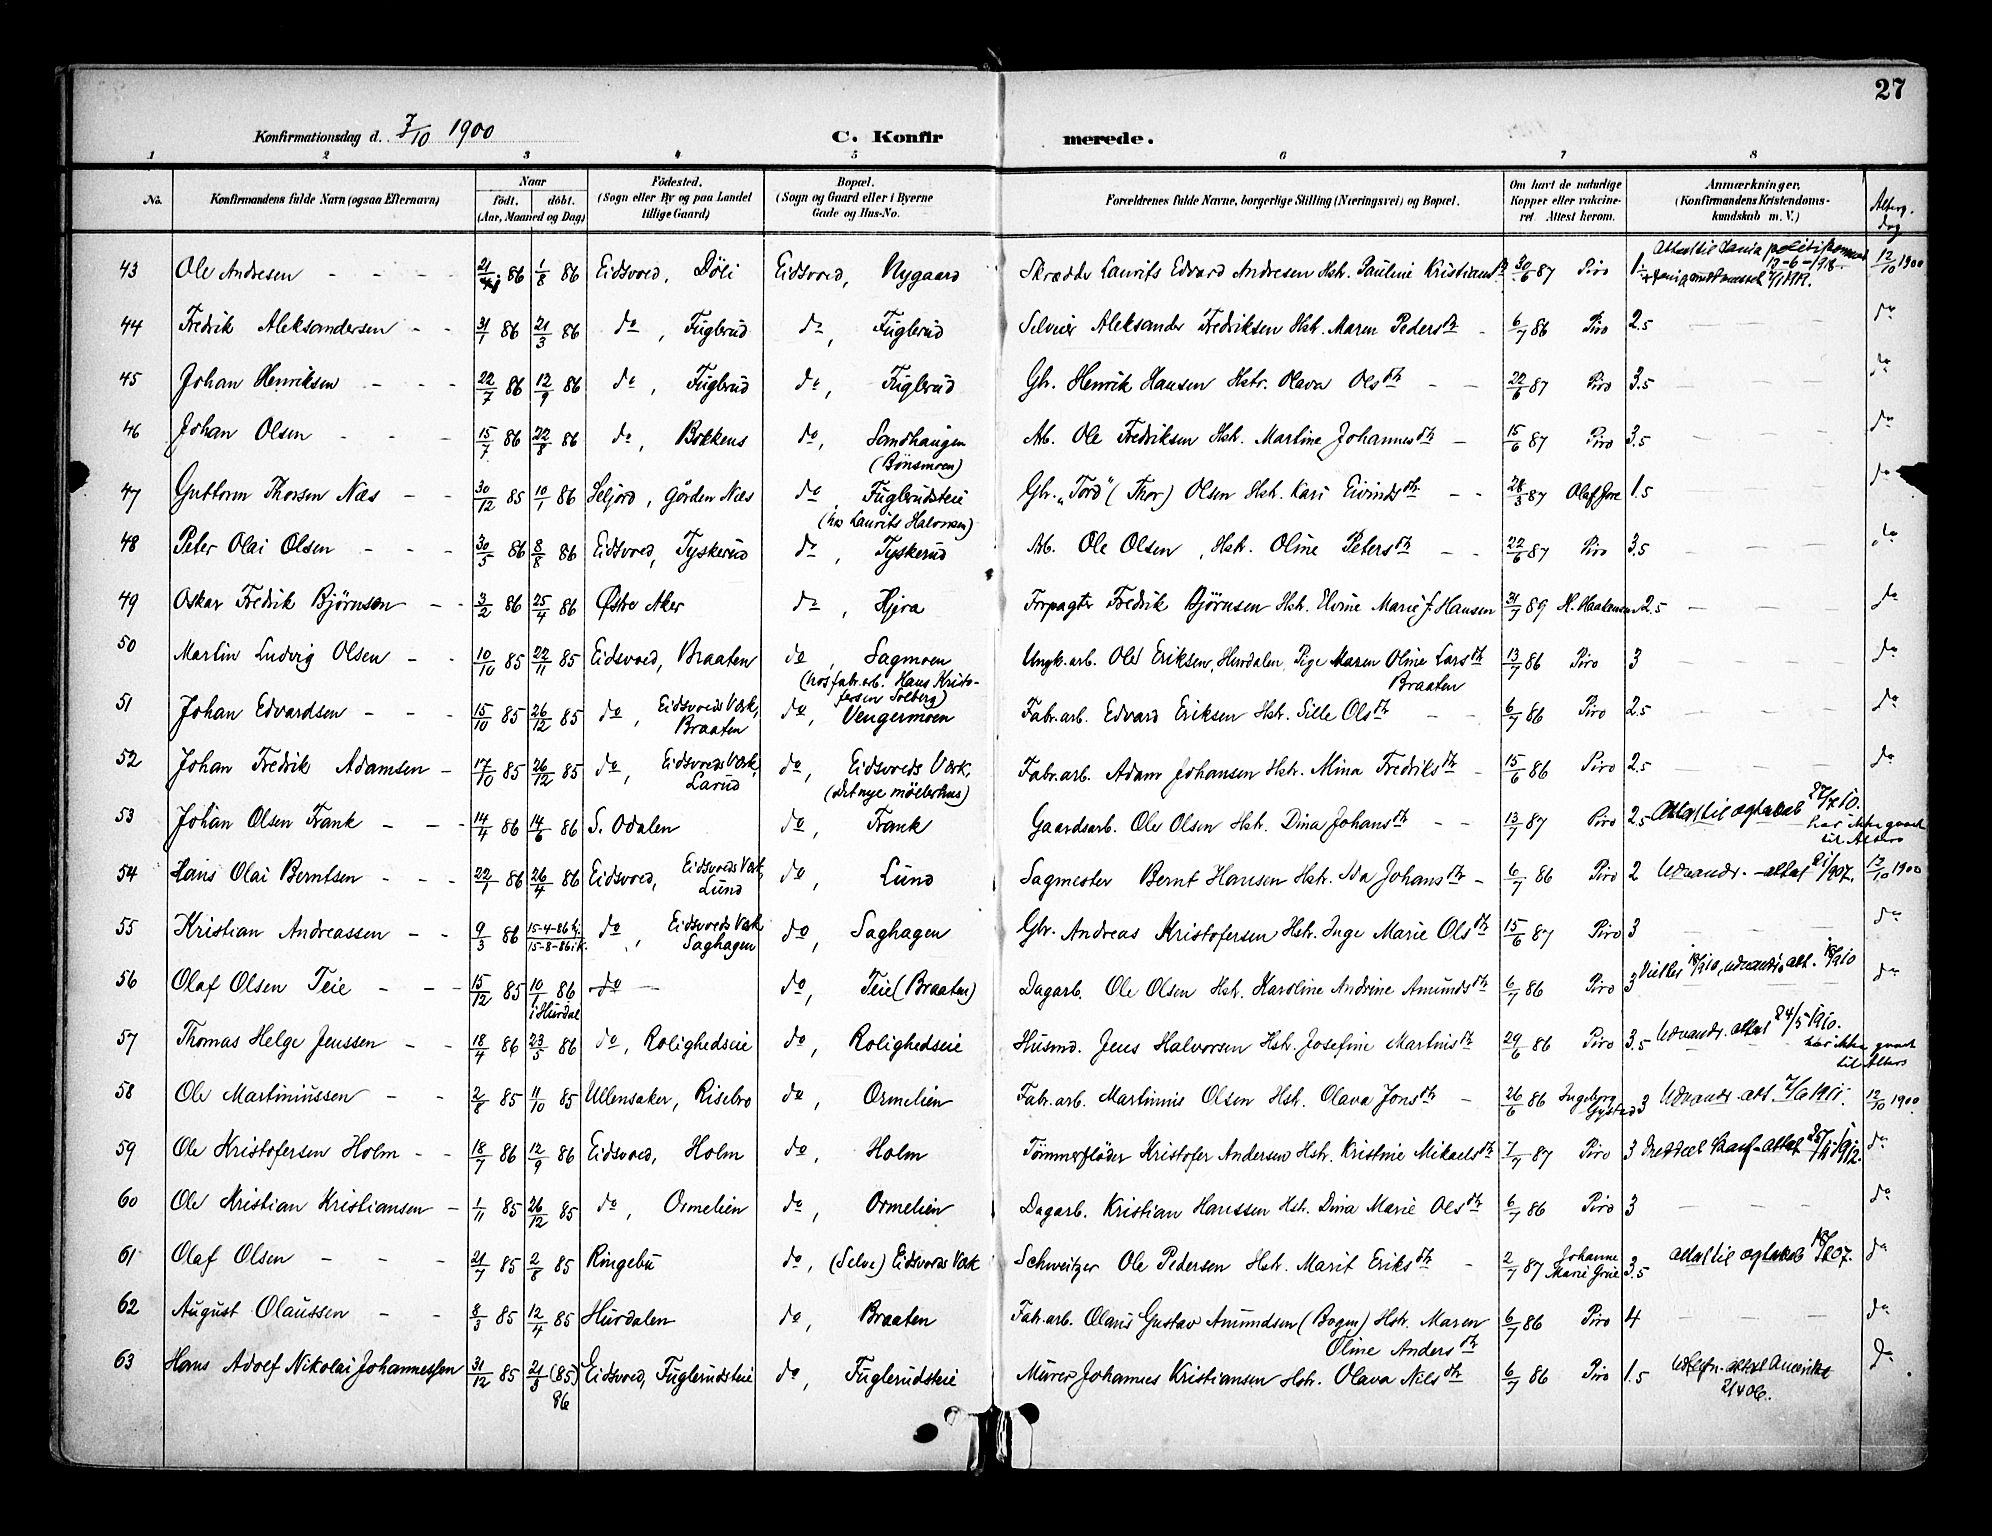 27
Konfirmationsdag d. 7/10 1900 C. Konfirmerede.
1 2 3 4 5 6 7 8
No. Konfirmandens fulde Navn (ogsaa Efternavn) Naar født. døbt. (Aar, Maaned og Dag) Fødested. (Sogn eller By og paa Landet tillige Gaard) Bopæl. (Sogn og Gaard eller i Byerne Gade og Hus-No. Forældrenes fulde Navne, borgerlige Stilling (Næringsvei) og Bopæl. Om havt de naturlige Kopper eller vakcineret. Attest herom. Anmærkninger, (Konfirmandens Kristendomskundskab m. V.) Alterg. dag
43 Ole Andresen 86 1/8 86 Eidsvold, Døli Eidsvold, Nygaard Skrædder Laurits Edvard Andresen Hstr. Pauline Kristiansdtr 30/6 87 Piro 12/10 1900
44 Fredrik Aleksandersen 31/1 86 21/3 86 do, Fuglerud do, Fuglerud Selveier Aleksander Fredriksen Hstr. Maren Pedersdtr 6/7 86 Piro 2.5 do
45 Johan Henriksen 22/7 86 12/9 86 do, Fuglerud do, Fuglerud Gbr. Henrik Hansen Hstr. Olava Olsdtr 22/6 87 Piro 3.5 do
46 Johan Olsen 15/7 86 22/8 86 do, Bekkens do, Sandhaugen (Bønsmoen) Arb. Ole Fredriksen Hstr. Martine Johannesdtr 15/6 87 Piro 3.5 do
47 Guttorm Thorsen Næs 30/12 85 10/1 86 Seljord, Gården Næs do Fuglerudseie (hos Laurits Halvorsen) Gbr. "Tord" (Thor) Olsen Hstr. Kari Eivindsdtr 28/3 87 Olaf Jore 1.5 do
48 Peter Olai Olsen 30/5 86 8/8 86 Eidsvold, Tyskerud do, Tyskerud Arb. Ole Olsen, Hstr. Oline Petersdtr 22/6 87 Piro 3.5 do
49 Oskar Fredrik Bjørnsen 3/2 86 25/4 86 Østre Aker do, Hjera Forpagter Fredrik Bjørnsen Hstr. Elvine Marie J. Hansen 31/7 89 H. Haakensen 2.5 do
50 Martin Ludvig Olsen 10/10 85 22/11 85 Eidsvold, Braaten do, Sagmoen (hos fabr.arb. Hans Kristofersen Solberg) Ungk. arb. Ole Eriksen, Hurdalen, Pige Maren Oline Larsdtr Braaten 13/7 86 Piro 3 do
51 Johan Edvardsen 15/10 85 26/12 85 do, Eidsvolds Værk, Braaten do, Vengermoen Fabr.arb. Edvard Eriksen Hstr. Sille Olsdtr 6/7 86 Piro 2.5 do
52 Johan Fredrik Adamsen 17/10 85 26/12 85 do, Eidsvolds Værk, Larud do, Eidsvolds Værk, (det nye møllerhus) Fabr.arb. Adam Johansen Hstr. Mina Fredriksdtr 15/6 86 Piro 2.5 do
53 Johan Olsen Frank 14/4 86 14/6 86 S. Odalen do, Frank Gaardsarb. Ole Olsen Hstr. Dina Johansdtr 13/7 87 Piro 2.5 Attest til ægteskab 27/7 10. har ikke gaaet til Alters
54 Hans Olai Berntsen 22/1 86 26/4 86 Eidsvold, Eidsvolds Værk, Lund do, Lund Sagmester Bernt Hansen Hstr. Ida Johansdtr 6/7 86 Piro 2 Udvandr. attest 12/10 1900
55 Kristian Andreassen 9/3 86 15-4-86 h. 15-8-86 i K. do, Eidsvolds Værk, Saghagen do, Saghagen Gbr. Andreas Kristofersen Hstr. Inge Marie Olsdtr 15/6 87 Piro 3 do
56 Olaf Olsen Teie 15/12 85 10/1 86 i Hurdal do do, Teie (Braaten) Dagarb. Ole Olsen Hstr. Karoline Andrine Amundsdtr 6/7 86 Piro 3 do
57 Thomas Helge Jenssen 18/4 86 23/5 86 do, Rolighedseie do, Rolighedseie Husmd. Jens Halvorsen Hstr. Josefine Martinsdtr 29/6 86 Piro 3.5 Udvandr. attest 24/5 1910. har ikke gaaet til Alters
58 Ole Martiniussen 2/8 85 11/10 85 Ullensaker, Risebro do, Ormelien Fabr.arb. Martinius Olsen Hstr. Olava Jonsdtr 26/6 86 Ingeborg Gystad 3 Udvandr. att. 2/6 1911. 12/10 1900
59 Ole Kristofersen Holm 18/7 86 12/9 86 Eidsvold, Holm do, Holm Tømmerfløder Kristofer Andersen Hstr. Kristine Mikaelsdtr 7/7 87 Piro 3 do
60 Ole Kristian Kristiansen 1/11 85 26/12 85 do, Ormelien do, Ormelien Dagarb. Kristian Hanssen Hstr. Dina Marie Olsdtr 6/7 86 Piro 3 do
61 Olaf Olsen 21/7 85 2/8 85 Ringebu do, (Selve) Eidsvolds Værk Schweitzer Ole Pedersen Hstr. Marit Eriksdtr 2/7 87 Johanne Marie Grue 3.5 attest til ægteskab do
62 August Olaussen 8/3 85 12/4 85 Hurdalen do, Braaten Fabr.arb. Olaus Gustav Amundsen (Bogen) Hstr. Maren Oline Andersdtr 6/7 86 Piro 4 do
63 Hans Adolf Nikolai Johannessen 31/12 85 21/3 (85) 86 Eidsvold, Fuglerudseie do, Fuglerudseie Murer Johannes Kristiansen Hstr. Olava Nilsdtr 6/7 86 Piro 1.5 attest Amerika do